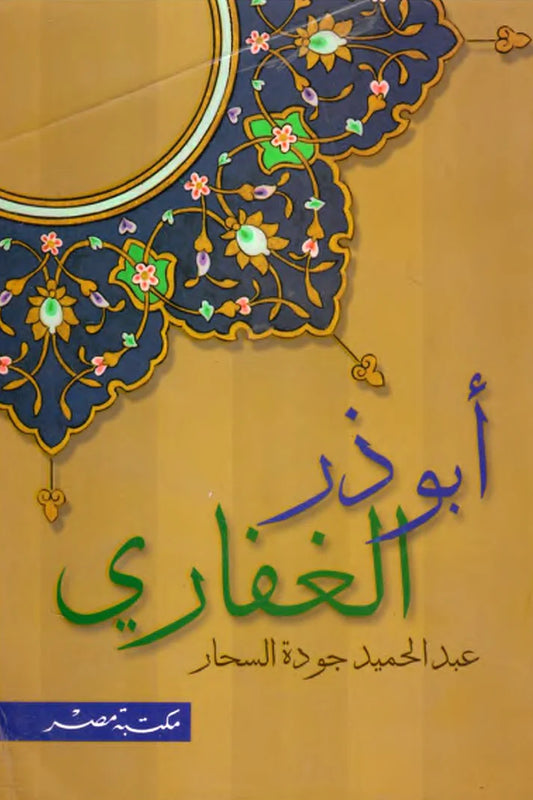 أبو ذر
الغفاري
عبد الحميد جودة السحار
مكتبة مصر